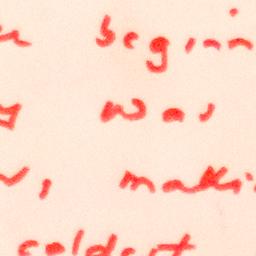 beginn
was
, maki
coldest